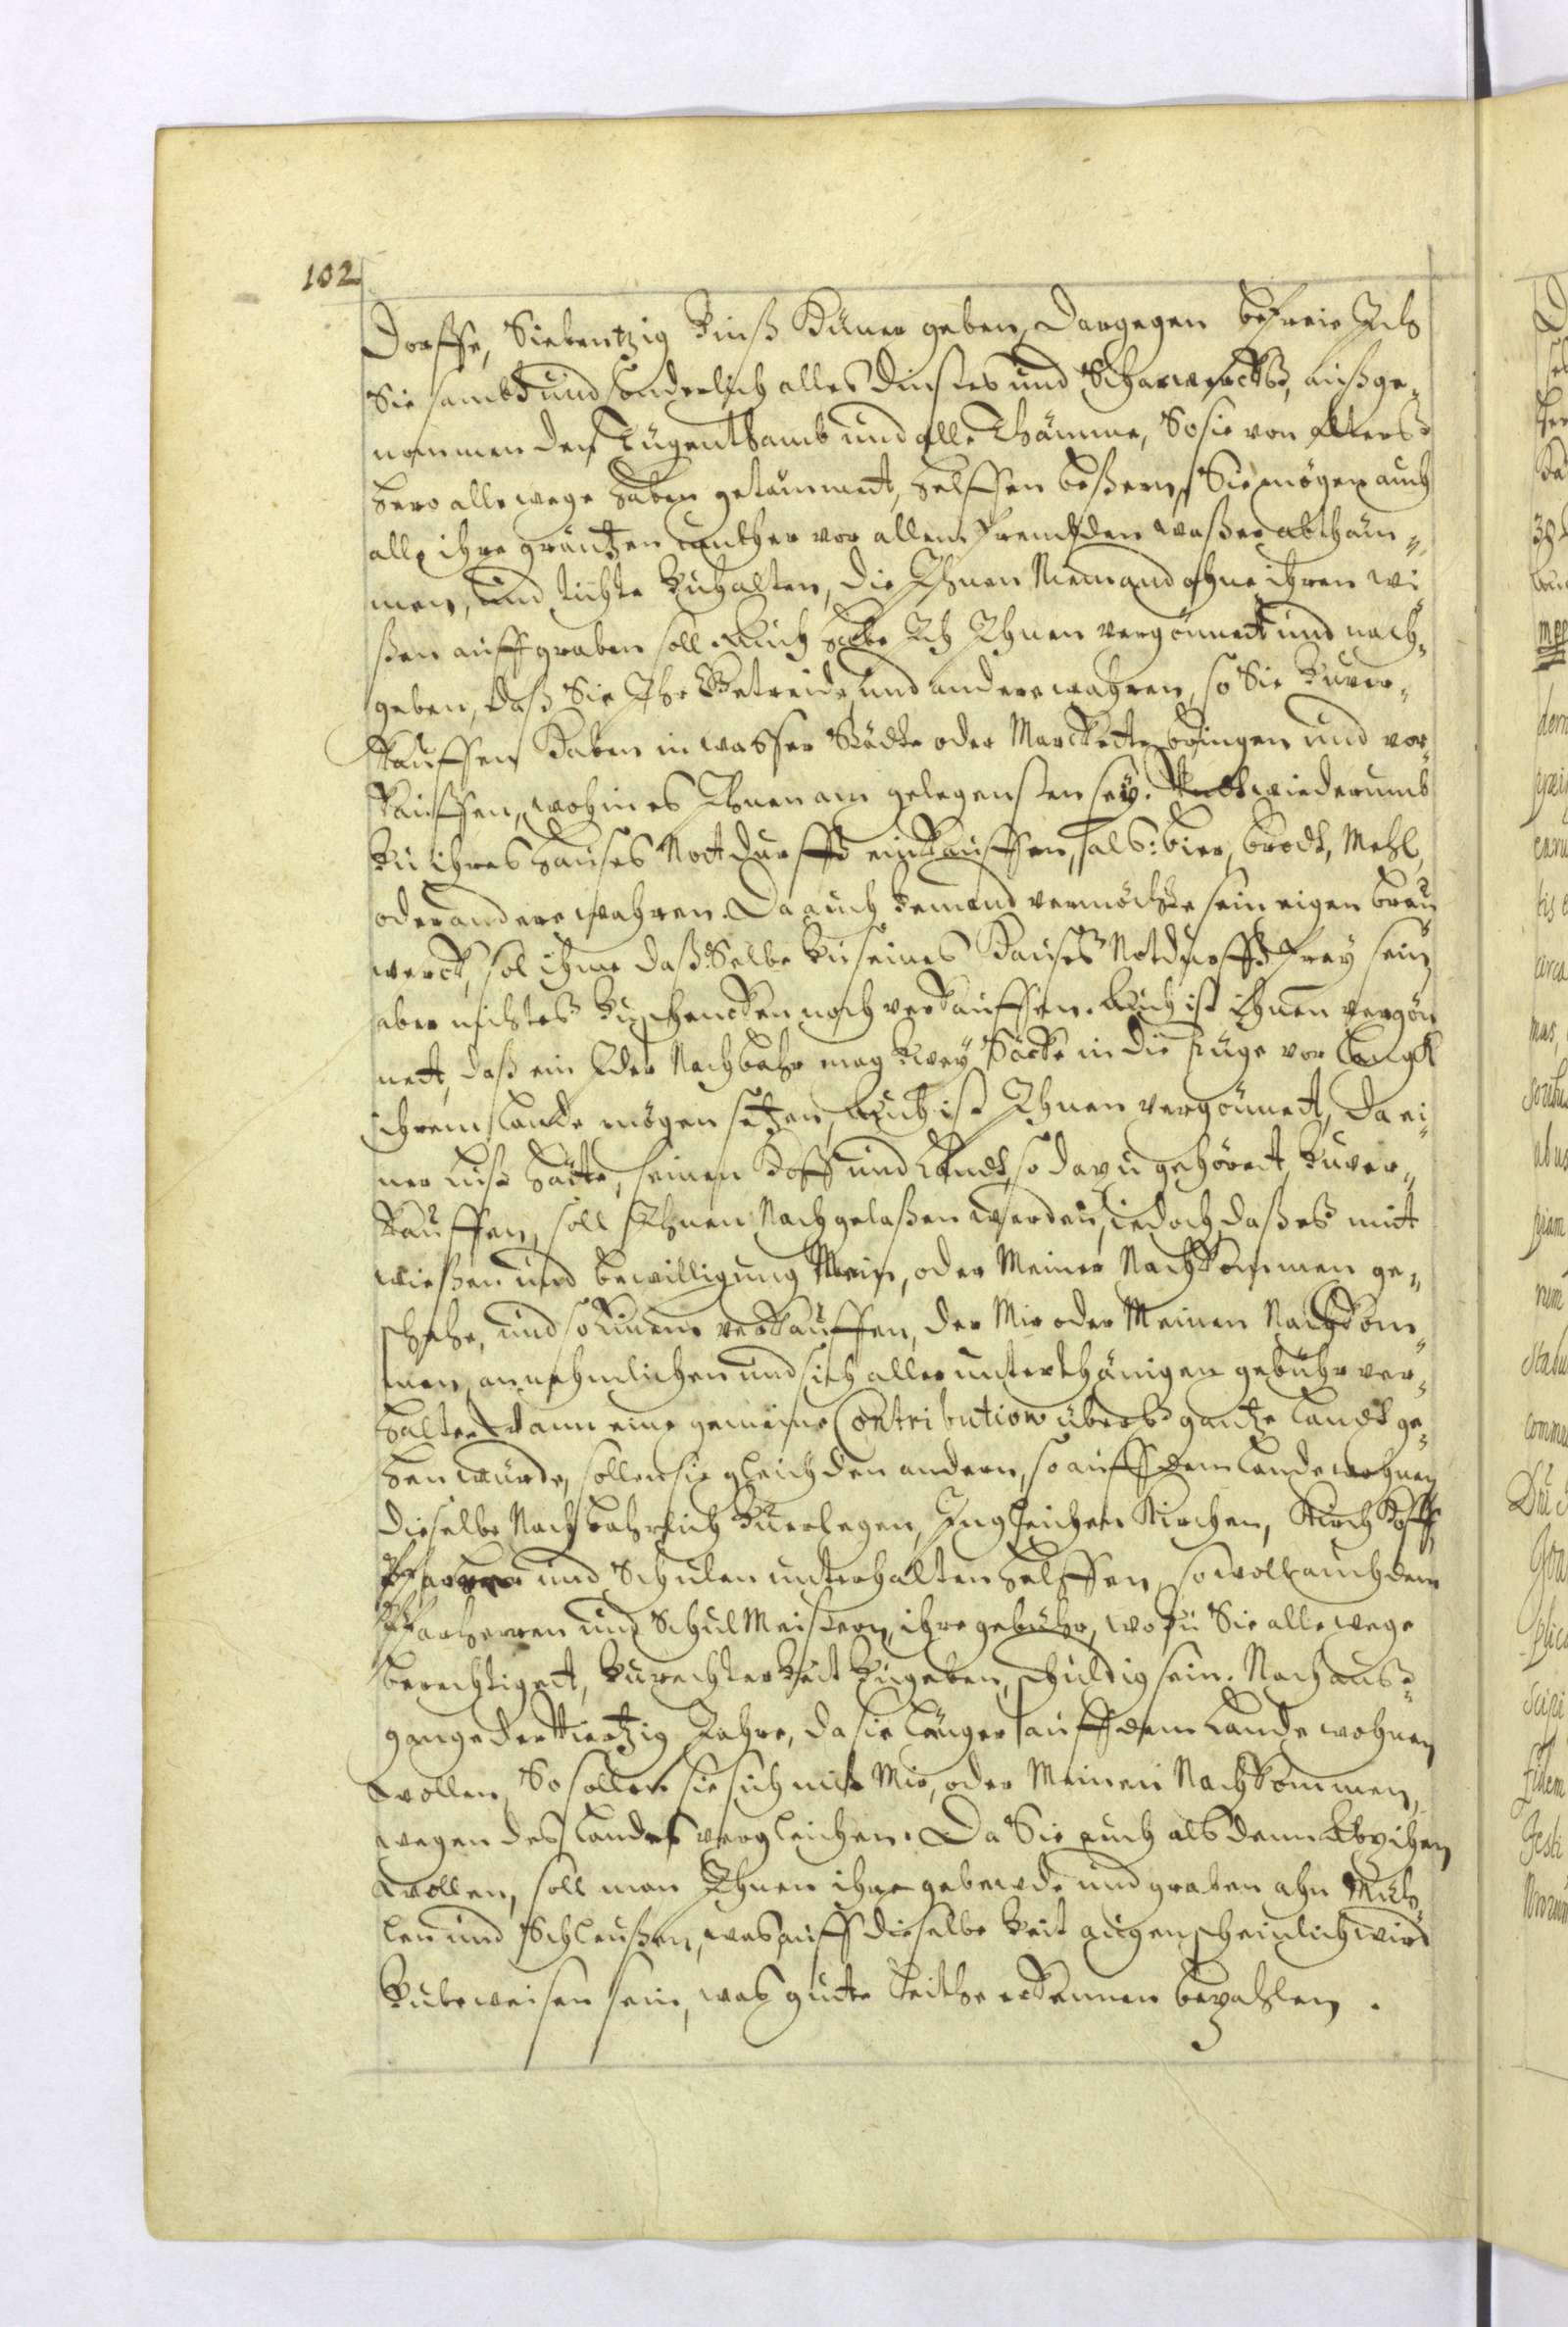 102
Dorffe, Siebentzig Zinß Hüner geben, Dargegen befreie Ich
Sie sambt und sonderlich alles dinstes und Scharwercks, außge„
nommen den Tügenthamb und alle Thämme, So sie von Alters
hero allewege haben getämmet, helffen beßern, Sie mögen auch
alle ihre gräntzen unther vor allem frembden waßer abthäm„
men, und tichte Zuhalten, die Ihnen Niemand ohne ihren wi
ßen auffgraben soll. Auch habe Ich Ihnen vergönnet und nach„
geben, daß Sie Ihr Getreide und andere wahren, so Sie Zuver„
kauffen haben in wasser Städte oder Marckte bringen und ver„
kauffen, wohin es Ihnen am gelegensten sey. wiederumb
Zu ihres hauses Nottdurfft einkauffen, als: bier, brodt, Mehl,
oder andere wahren. Da auch Jemand vermöchte sein eigen breu
werck, sol ihme daß Selbe Zu seines Hauses Notdurfft frey sein
aber nichtes Zuschencken noch verkauffen. Auch ist Ihnen vergön
nett, daß ein Jeder Nachbahr mag Zwey Säcke in die Füge vor langst
ihrem lande mögen setzen, Auch ist Ihnen vergönnett, Da ei„
ner lust hätte, seinen Hoff und Landt, so darzu gehöret, Zuver„
kauffen, soll Ihnen Nachgelaßen werden, iedoch daß es mit
wießen und bewilligung Mein, oder Meiner Nachkommen ge„
schehe, und so Einem verkauffen, der Mir oder Meinen Nachkom„
men annehmlichen und sich aller unterthänigen gebühr ver„
halte dann eine gemeine Contribution übers gantze landt ge„
hen würde, sollen sie gleich den andern, so auff dem lande wohnen
dieselbe Nachbahrlich Zuerlegen, Ingleichen Kirchen, Kirch Hoff
Pfarren und Schulen unterhalten helffen, so woll auch dem
Pfarherren und Schul Meistern, ihre gebühr, wo zu Sie allewege
berechtiget, Zu rechter Zeit Zugeben, schuldig sein. Nach aus„
gange der Viertzig Jahre, da sie länger auff dem Lande wohnen
wollen, So sollen sie sich mit Mir, oder Meinen Nachkommen,
wegen des Landes vergleichen. Da Sie auch alsdenn Abziehen
wollen, soll man Ihnen ihre gebewde und graben ahn Müh„
len und Schleußen, was auff dieselbe Zeit augenscheinlich wird
Zubeweisen sein, was gutte leithe erkennen bezahlen.